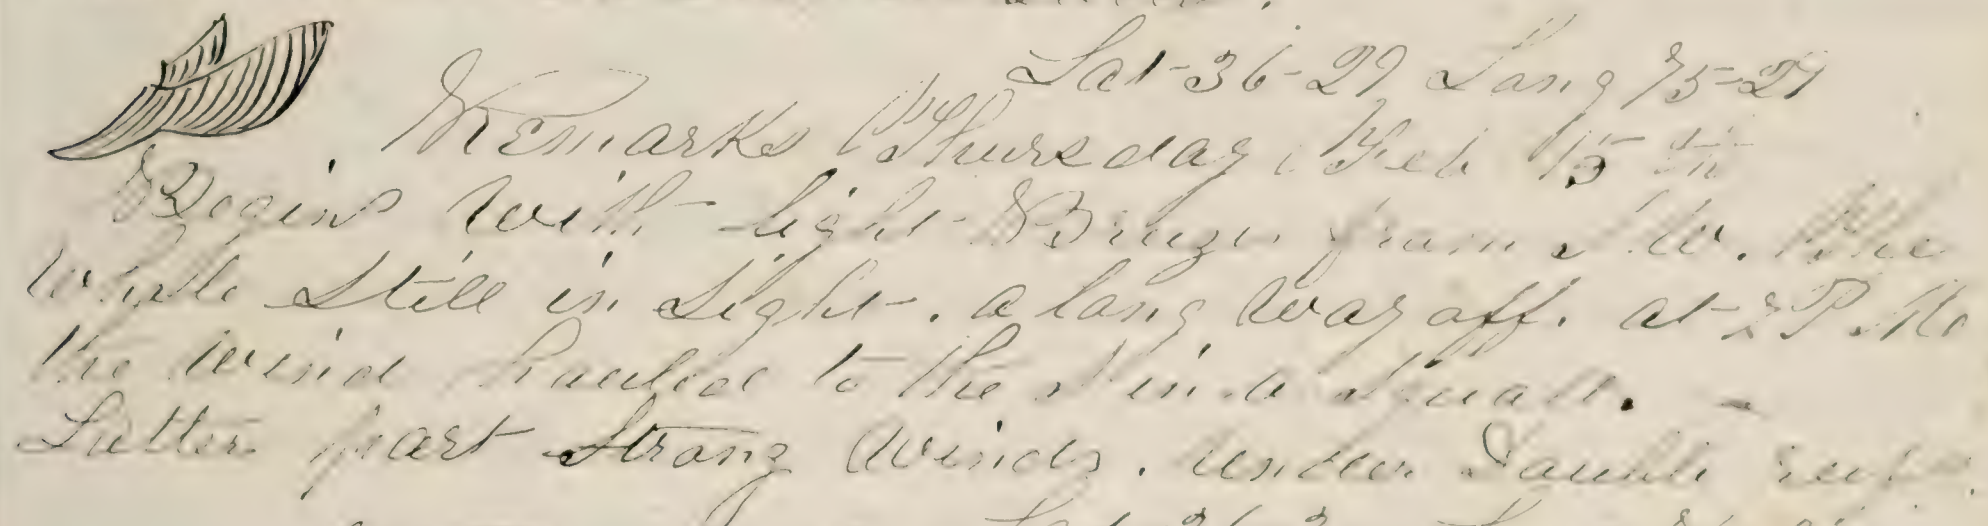 Lat 36-29 Long 75-27
Remarks Thursday Feb 15th
Begins with light Breeze from S W. the
Whale Still in Sight. a long way off. at 2 P M
the wind hauled to the S in a Squall. -
Latter part Strong Winds. under Double reefs.